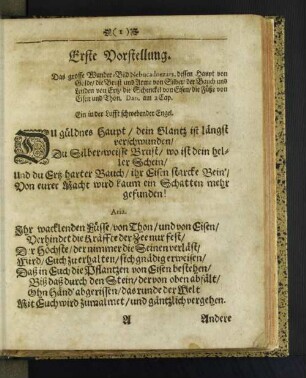 ( 1 )
Erste Vorstellung.
Das grosse Wunder-Bild dessen Haupt von
Golde/ die Brust und Arme von Silber/ der Bauch und
Lenden von Ertz/ die Schenckel von Eisen/ die Füsse von
Eisen und Thon. Dan. am 2 Cap.
Ein in der Lufft schwebender Engel.
DU güldnes Haupt/ dein Glantz ist längst
verschwunden/
Du Silber-weisse Brust/ wo ist dein hel-
ler Schein/
Und du Ertz harter Bauch/ ihr Eisen starcke Bein'/
Von eurer Macht wird kaum ein Schatten mehr
gefunden!
Aria.
Ihr wacklenden Füsse von Thon/ und von Eisen/
Verbindet die Kräffte der Zee nur fest/
Der Höchste/ der nimmer die Seinen verläst/
Wird/ Euch zu erhalten/ sich gnädig erweisen/
Daß in Euch/ die Pflantzen von Eisen bestehen/
Biß daß durch den Stein/ der von oben abfält/
Ohn Händ' abgerissen/ das runde der Welt
Mit Euch wird zumalmet/ und gäntzlich vergehen.
A Andere